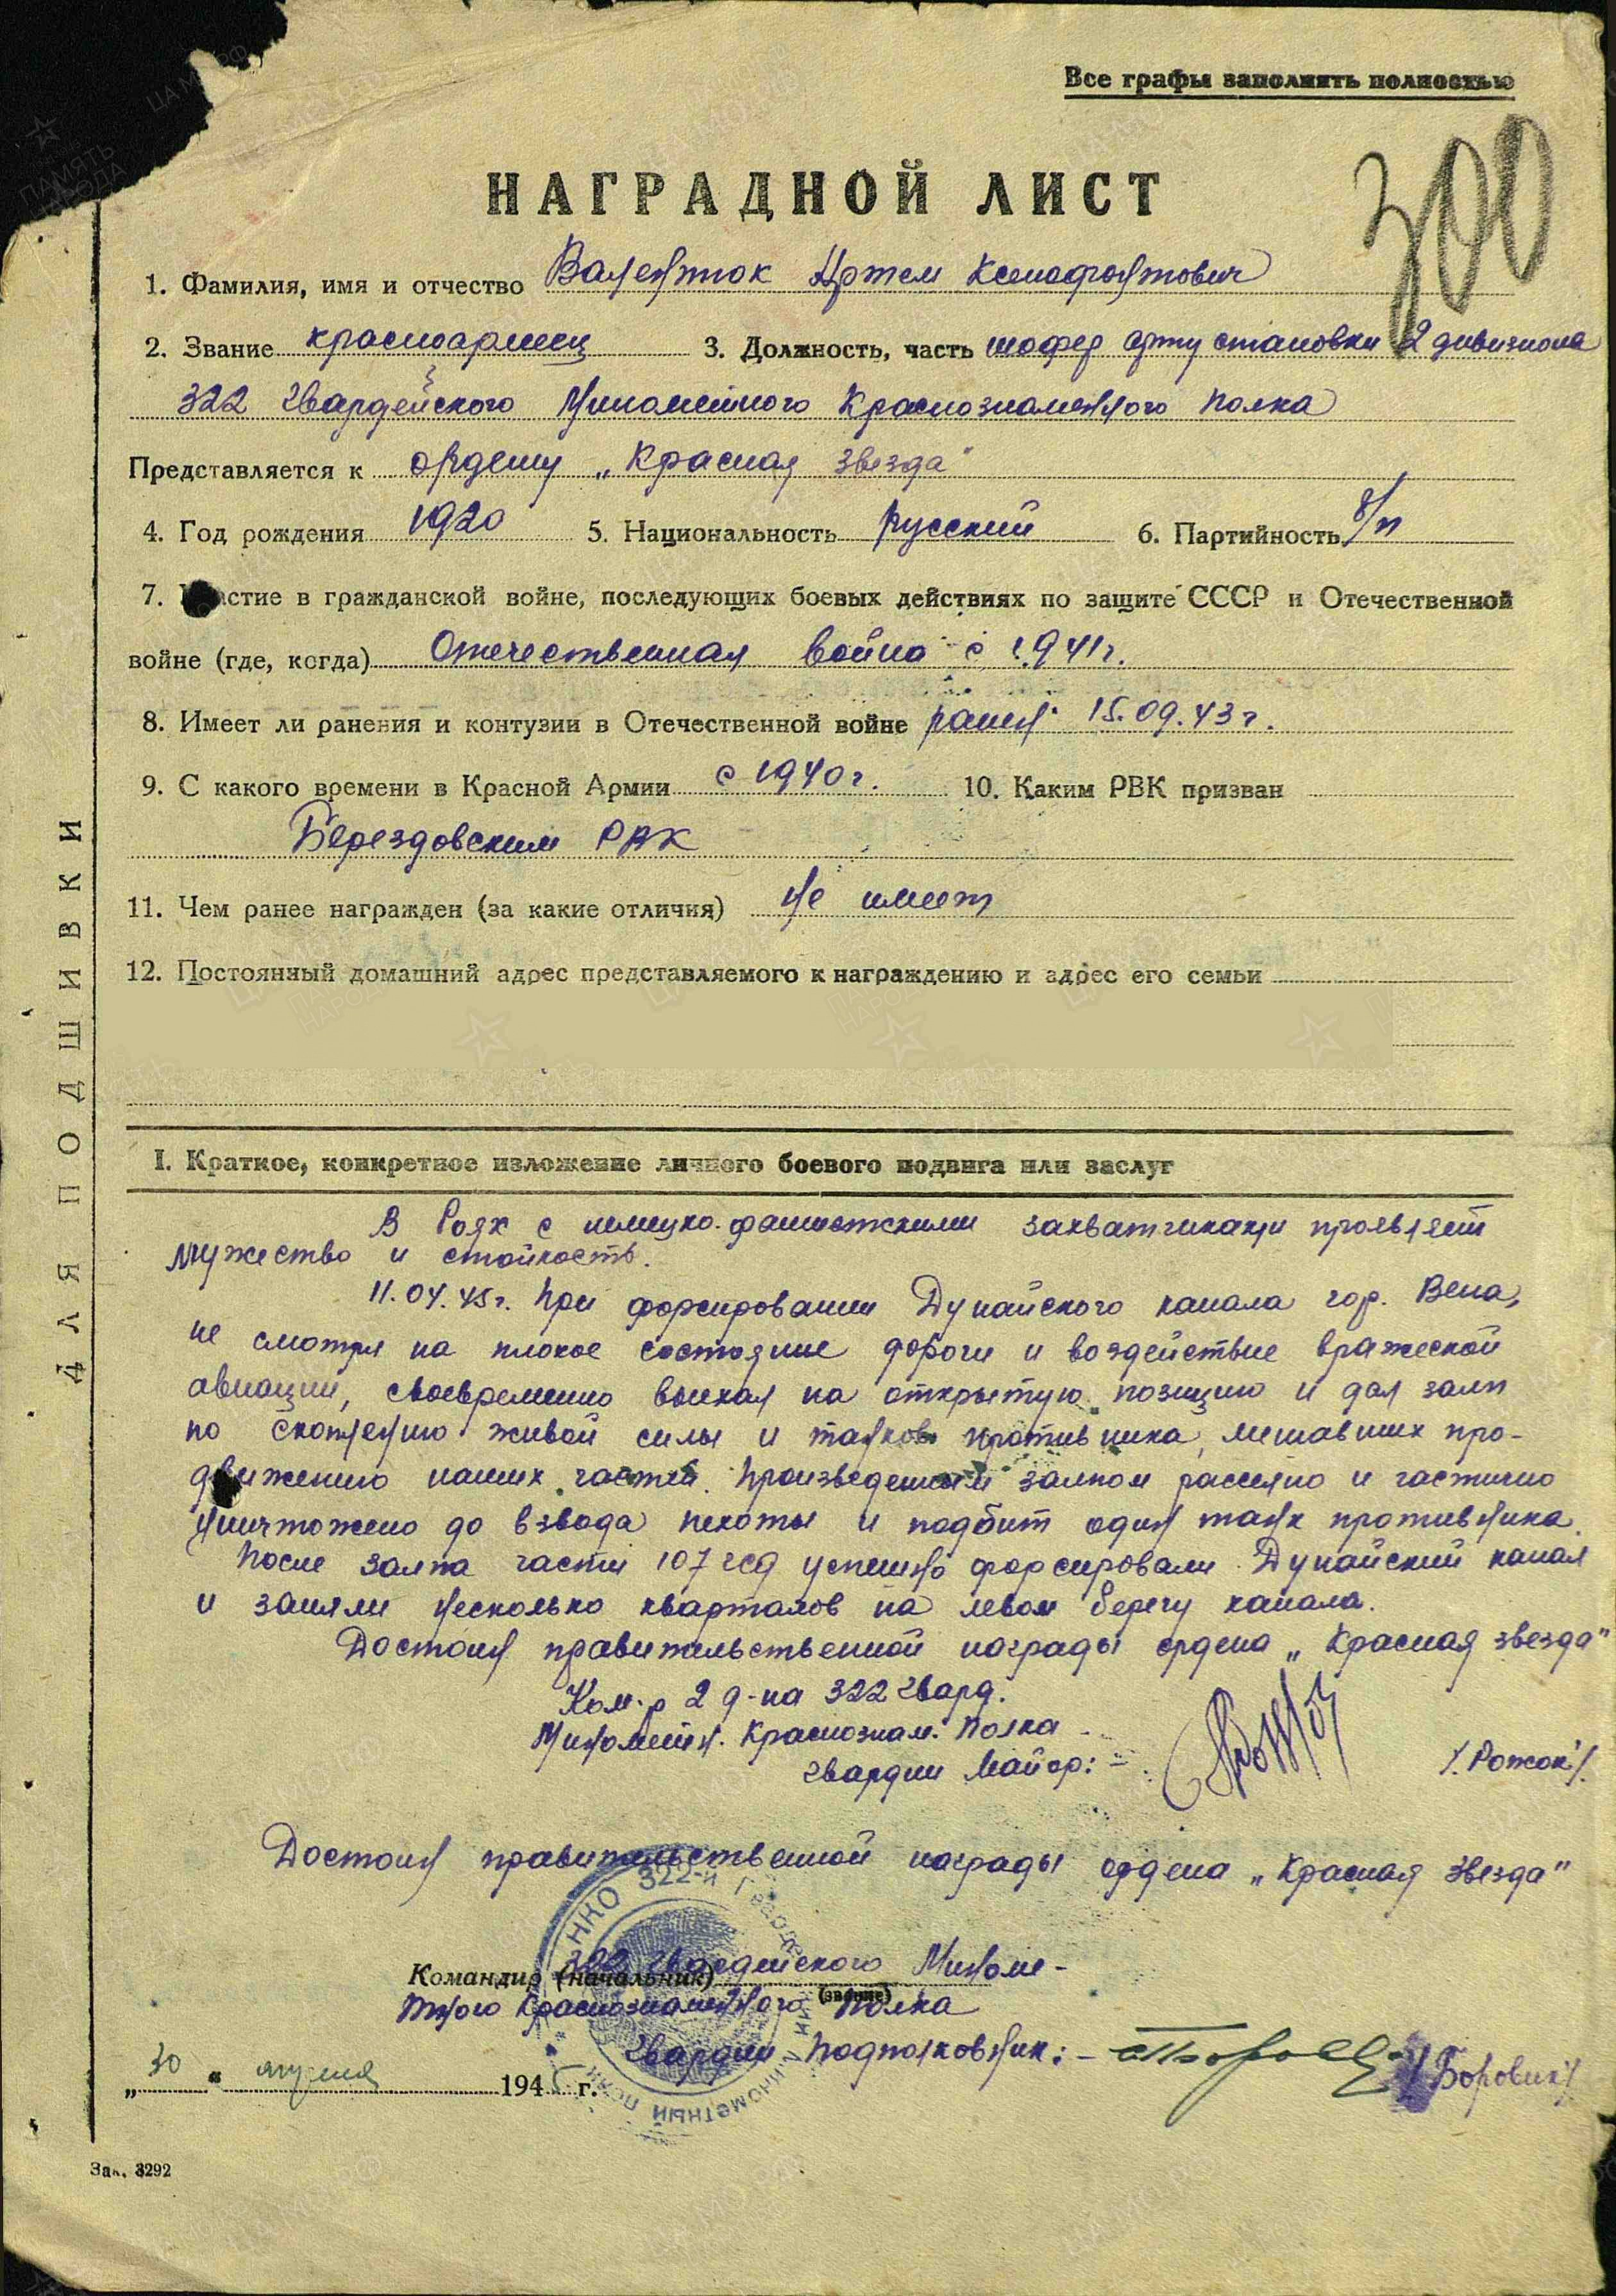 Все графы заполнять полностью
300
НАГРАДНОЙ ЛИСТ
1. Фамилия, имя и отчество Валентюк Артем Ксенофонтович
2. Звание красноармеец 3. Должность, часть шофер арт установки 2 дивизиона
322 Гвардейского Минометного Краснознаменного полка
Представляется к ордену „Красная звезда"
4. Год рождения 1920 5. Национальность русский 6. Партийность б/п
7. Участие в гражданской войне, последующих боевых действиях по защите СССР и Отечественной
войне (где, когда) Отечественная война с 1941г.
8. Имеет ли ранения и контузии в Отечественной войне ранен 15.09.43г.
9. С какого времени в Красной Армии с 1940г. 10. Каким РВК призван
Берездовским РВК
11. Чем ранее награжден (за какие отличия) не имеет
12. Постоянный домашний адрес представляемого к награждению и адрес его семьи
I. Краткое, конкретное изложение личного боевого подвига или заслуг
В боях с немецко-фашистскими захватчиками проявляет
мужество и стойкость.
11.04.45г. при форсировании Дунайского канала гор. Вена,
не смотря на плохое состояние дороги и воздействие вражеской
авиации, своевременно выехал на открытую позицию и дал залп
по скоплению живой силы и танков противника, мешавших про-
движению наших частей. Произведенным залпом рассеяно и частично
уничтожено до взвода пехоты и подбит один танк противника.
После залпа части 107 гсд успешно форсировали Дунайский канал
и заняли несколько кварталов на левом берегу канала.
Достоин правительственной награды ордена „Красная звезда"
Ком-р 2 д-на 322 Гвард.
Минометн. Краснознам. полка
гвардии Майор: - /Рожок/.
Достоин правительственной награды ордена „Красная Звезда"
НКО 322-й Гвардейский минометный полк
Командир (начальник) 322 Гвардейского Миноме-
(звание)
тного Краснознаменного полка
Гвардии подполковник: - /Боровик/
„30" апреля 1945 г.
Зак. 3292
ДЛЯ ПОДШИВКИ
ПАМЯТЬ НАРОДА
ЦАМО РФ